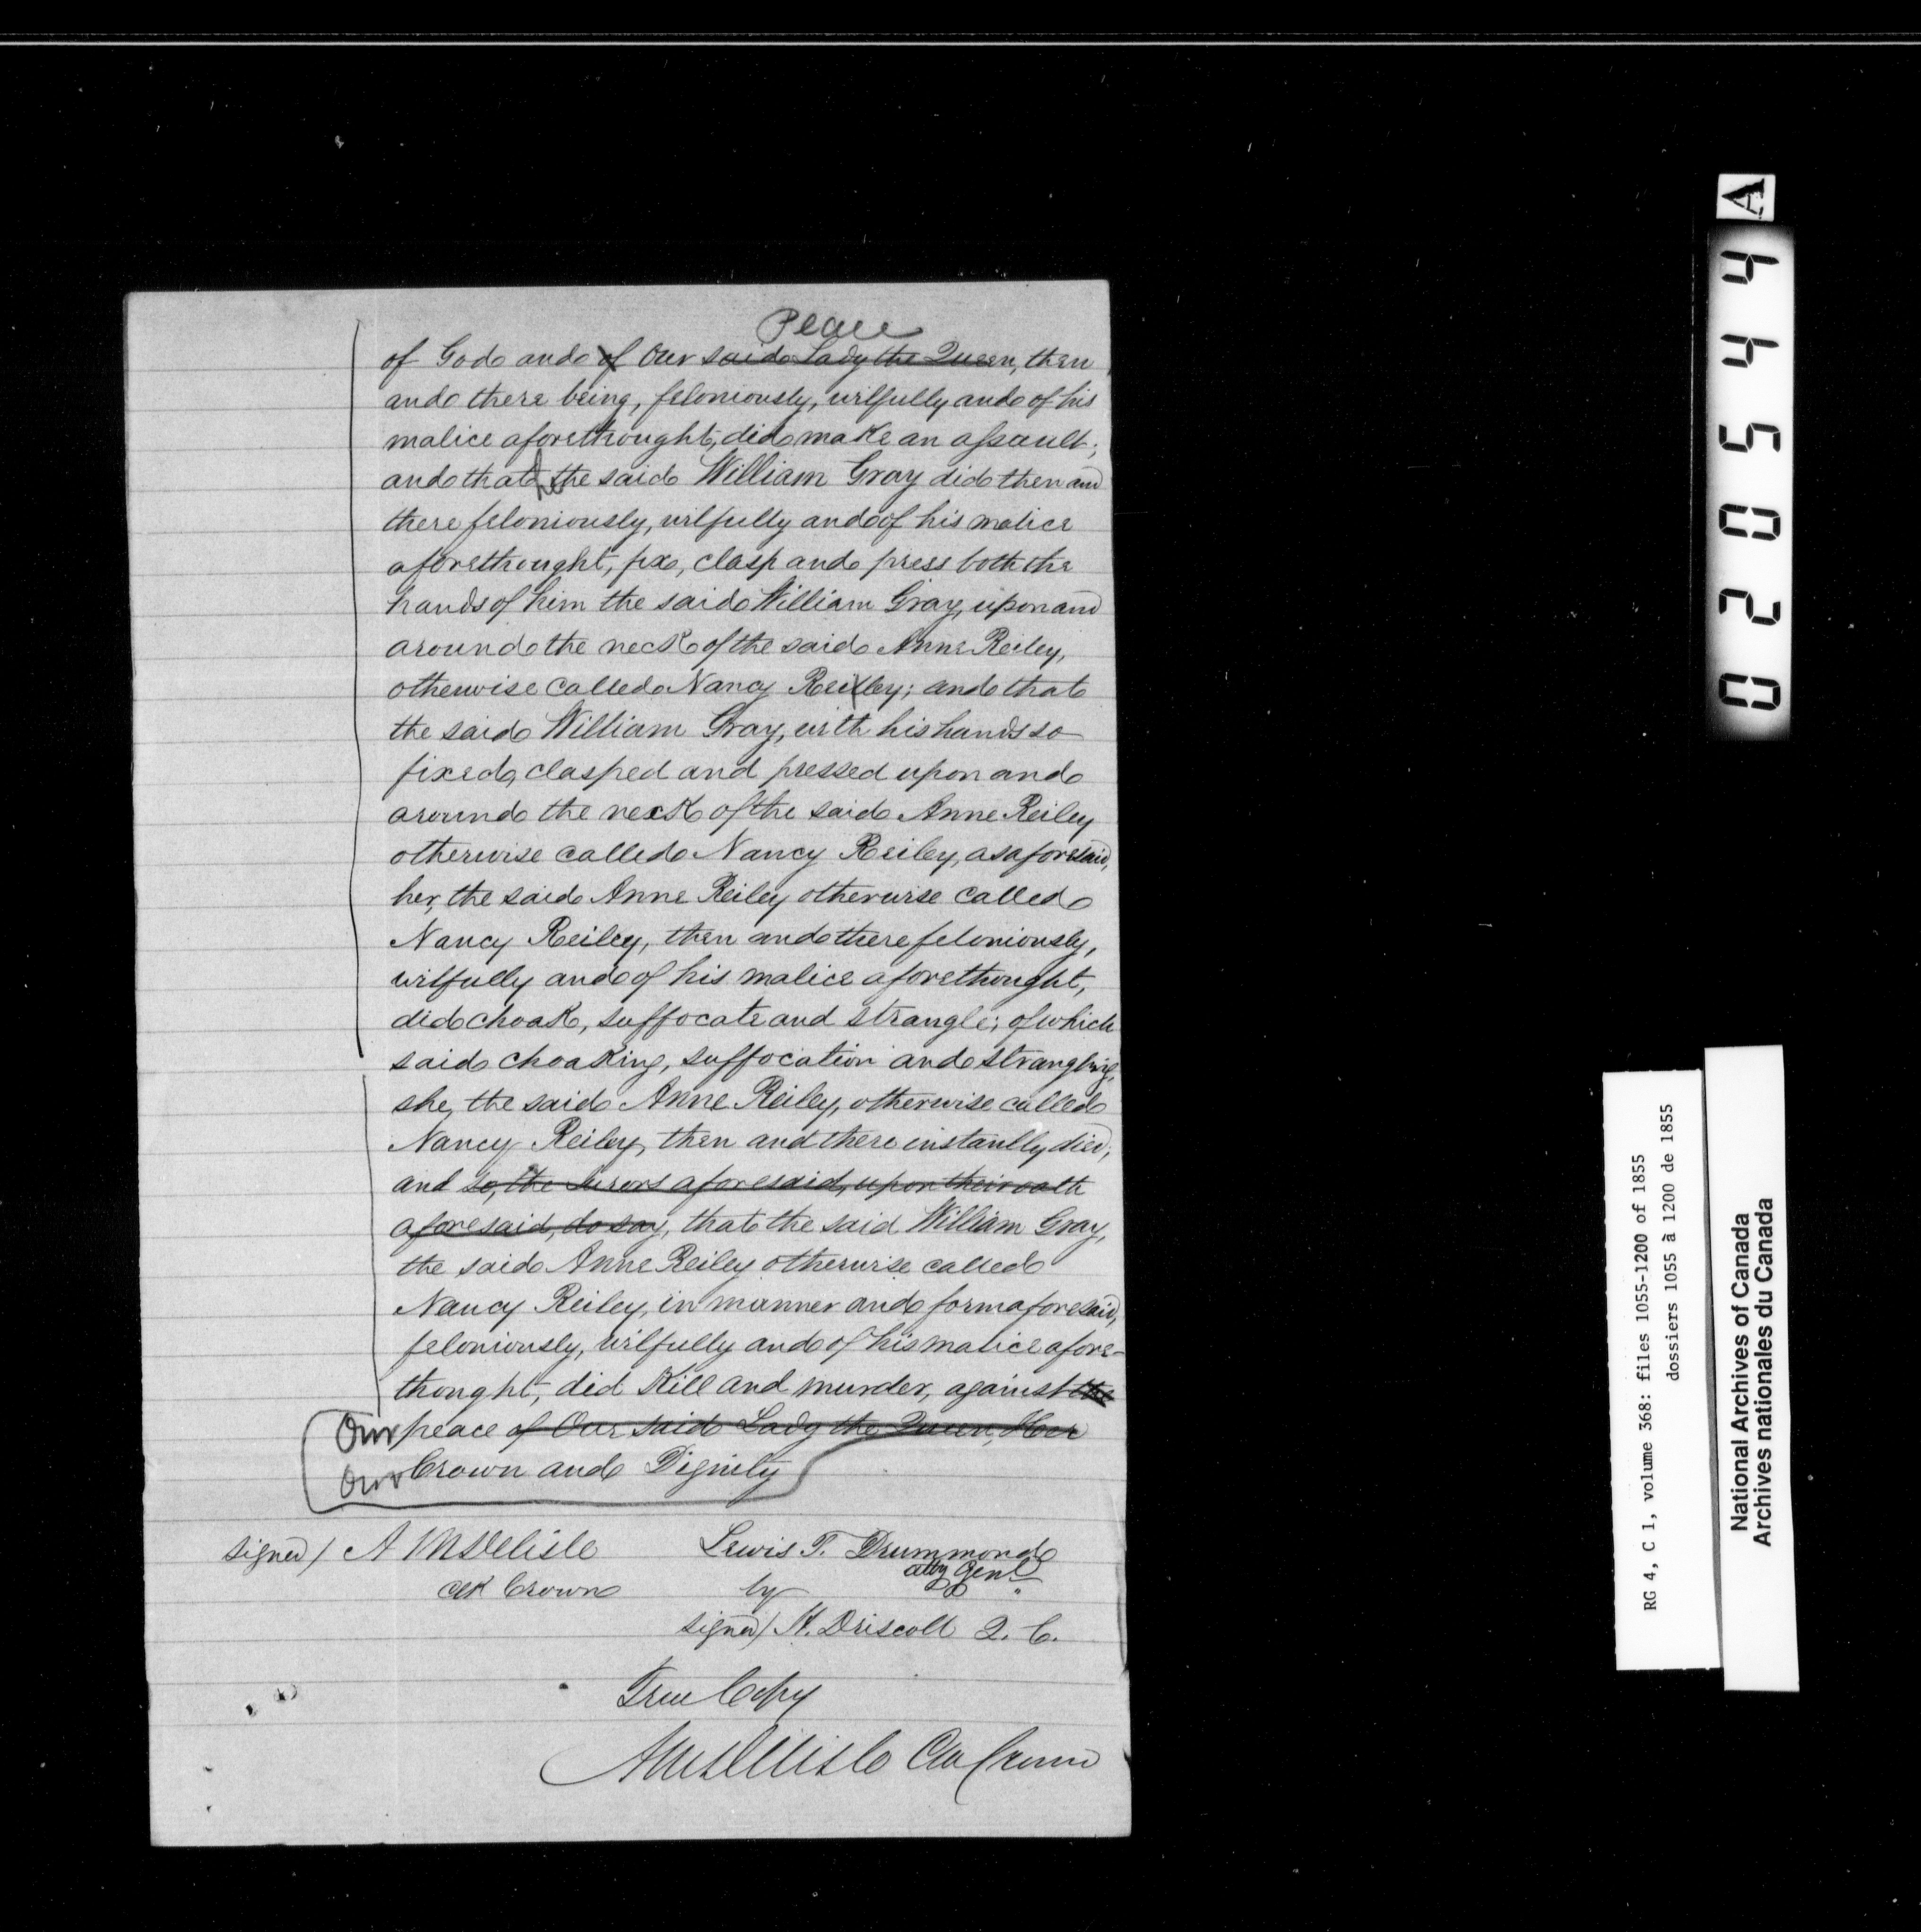 Peace
of God and of Our said Lady the Queen, then
and there being, feloniously, wilfully and of his
malice aforethought, did make an assault;
and that he the said William Gray did then and
there feloniously, wilfully and of his malice
aforethought, fix, clasp and press both the
hands of him the said William Gray, upon and
around the neck of the said Anne Reiley,
otherwise called Nancy Reilley; and that
the said William Gray, with his hands so
fixed, clasped and pressed upon and
around the neck of the said Anne Reiley
otherwise called Nancy Reiley, as aforesaid,
her, the said Anne Reiley otherwise called
Nancy Reiley, then and there feloniously,
wilfully and of his malice aforethought,
did choak, suffocate and strangle; of which
said choaking, suffocation and strangling,
she, the said Anne Reiley, otherwise called
Nancy Reiley, then and there instantly died;
and so, the Jurors aforesaid, upon their oath
aforesaid, do say, that the said William Gray,
the said Anne Reiley otherwise called
Nancy Reiley, in manner and form aforesaid,
feloniously, wilfully and of his malice afore-
thought, did kill and murder, against the
Our peace of Our said Lady the Queen, Her
Our Crown and Dignity
signed / A M Delisle Lewis T. Drummond
Atty Genl
Clk Crown by
signed / H. Driscoll Q. C.
True Copy
AM Delisle Clk Crown
A
020544
RG 4, C 1, volume 368: files 1055-1200 of 1855
dossiers 1055 à 1200 de 1855
National Archives of Canada
Archives nationales du Canada